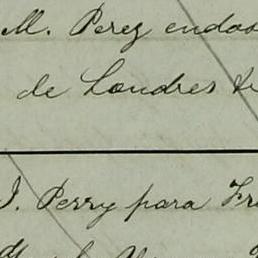 M. Perez endos
de Londres
J. Perry para Fr